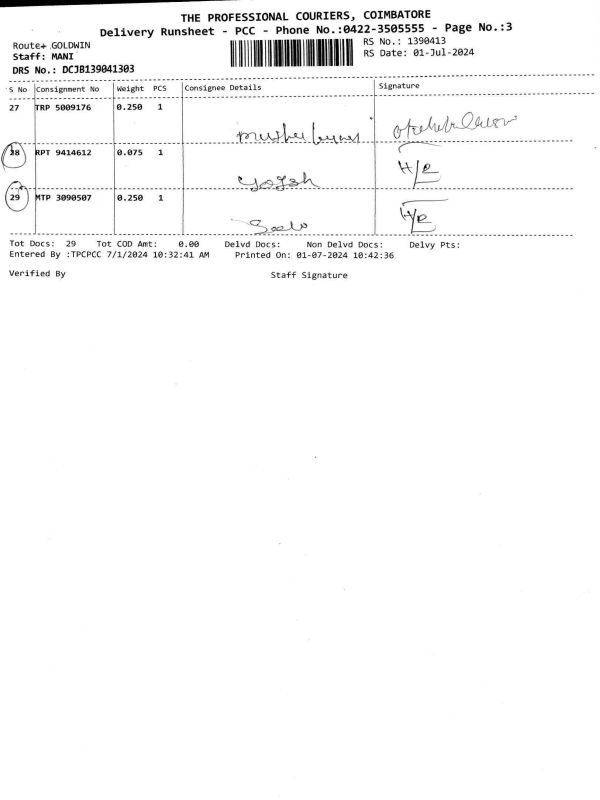 THE PROFESSIONAL COURIERS, COIMBATORE
Delivery Runsheet - PCC - Phone No.:0422-3505555 - Page No.:3
Route: GOLDWIN
RS No.: 1390413
Staff: MANI
RS Date: 01-Jul-2024
DRS No.: DCJB139041303
S No Consignment No Weight PCS Consignee Details Signature
27 TRP 5009176 0.250 1
28 RPT 9414612 0.075 1 H/R
Yogsh
29 MTP 3090507 0.250 1 H/R
Tot Docs: 29 Tot COD Amt: 0.00 Delvd Docs: Non Delvd Docs: Delvy Pts:
Entered By :TPCPCC 7/1/2024 10:32:41 AM Printed On: 01-07-2024 10:42:36
Verified By Staff Signature